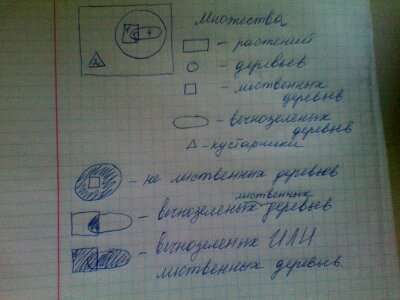 Множества
- растений
- деревьев
- лиственных
деревьев
- вечнозеленых
деревьев
- кустарники
- не лиственных деревьев
лиственных
- вечнозеленых деревьев
- вечнозеленых ИЛИ
лиственных деревьев.